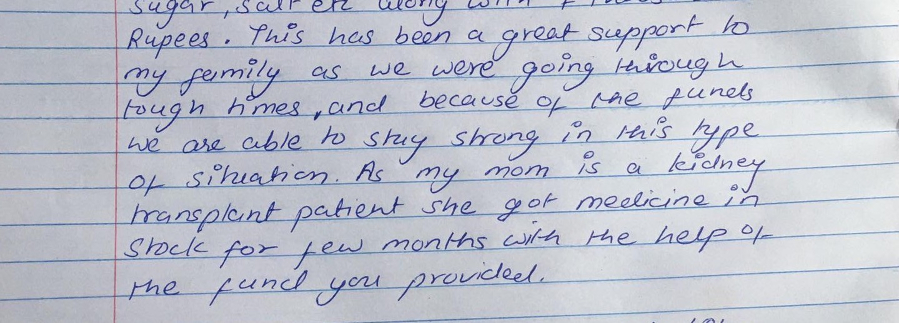 sugar, salt etc along with
Rupees. This has been a great support to
my family as we were going through
tough times, and because of the funds
we are able to stay strong in this type
of situation. As my mom is a kidney
transplant patient she got medicine in
stock for few months with the help of
the fund you provided.